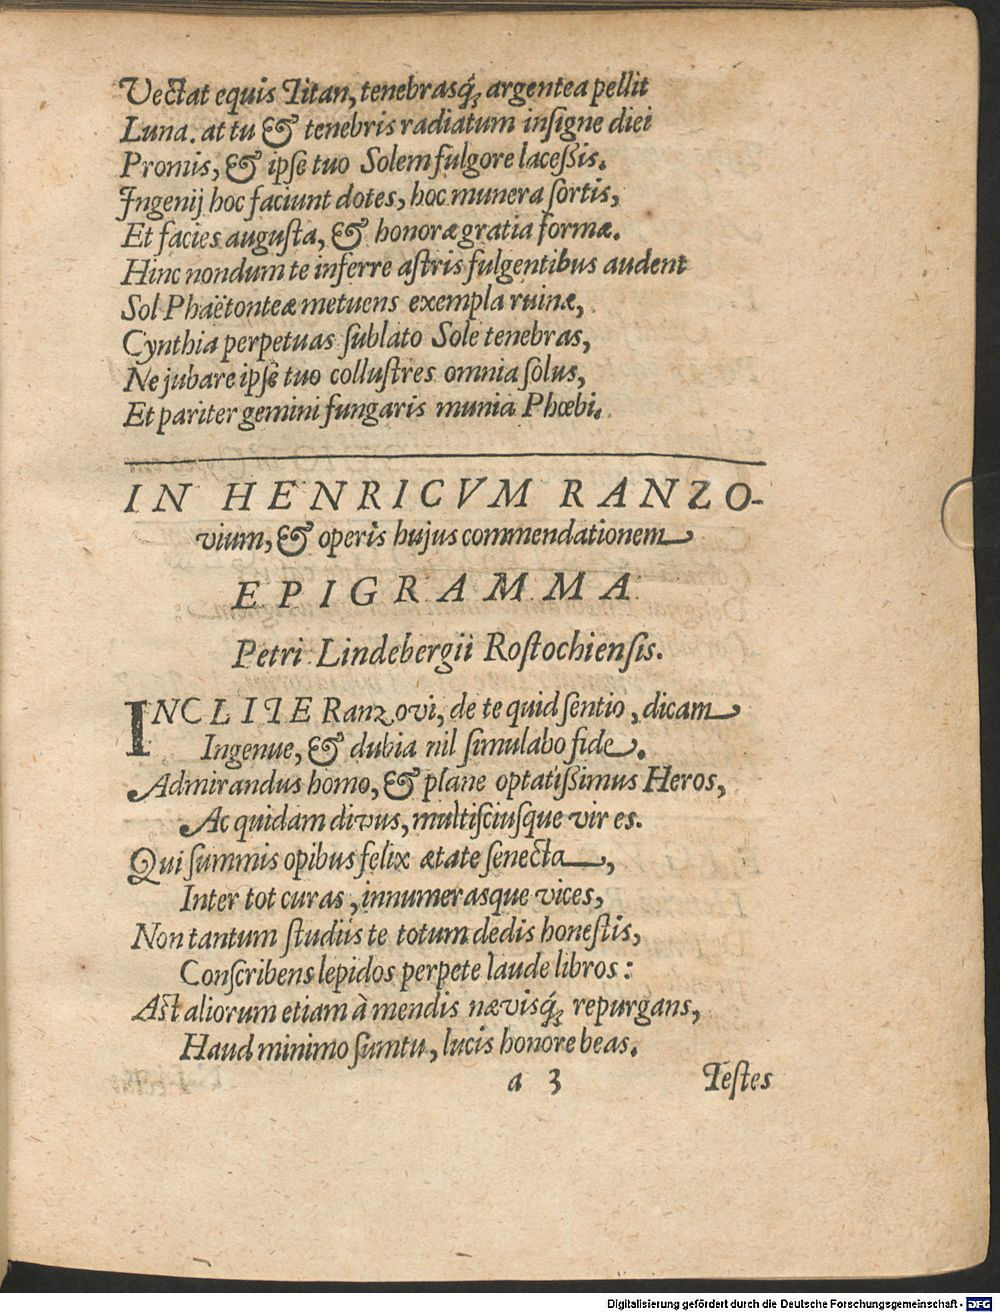 Vectat equis Titan, tenebrasq́; argentea pellit
Luna. at tu & tenebris radiatum inſigne diei
Promis, & ipſe tuo Solem fulgore laceßis.
Ingenij hoc faciunt dotes, hoc munera ſortis,
Et facies auguſta, & honoræ gratia formæ.
Hinc nondum te inferre aſtris fulgentibus audent
Sol Phaëtonteæ metuens exempla ruinæ,
Cynthia perpetuas ſublato Sole tenebras,
Ne jubare ipſe tuo colluſtres omnia ſolus,
Et pariter gemini fungaris munia Phœbi.
IN HENRICVM RANZO-
vium, & operis hujus commendationem
EPIGRAMMA
Petri Lindebergii Roſtochienſis.
INCLITE Ranzovi, de te quid ſentio, dicam
Ingenue, & dubia nil ſimulabo fide.
Admirandus homo, & plane optatißimus Heros,
Ac quidam divus, multiſciuſque vir es.
Qui ſummis opibus felix ætate ſenecta,
Inter tot curas, innumerasque vices,
Non tantum ſtudiis te totum dedis honeſtis,
Conſcribens lepidos perpete laude libros:
Aſt aliorum etiam à mendis nævisq́; repurgans,
Haud minimo ſumtu, lucis honore beas.
a 3 Teſtes
Digitalisierung gefördert durch die Deutsche Forschungsgemeinschaft - DFG